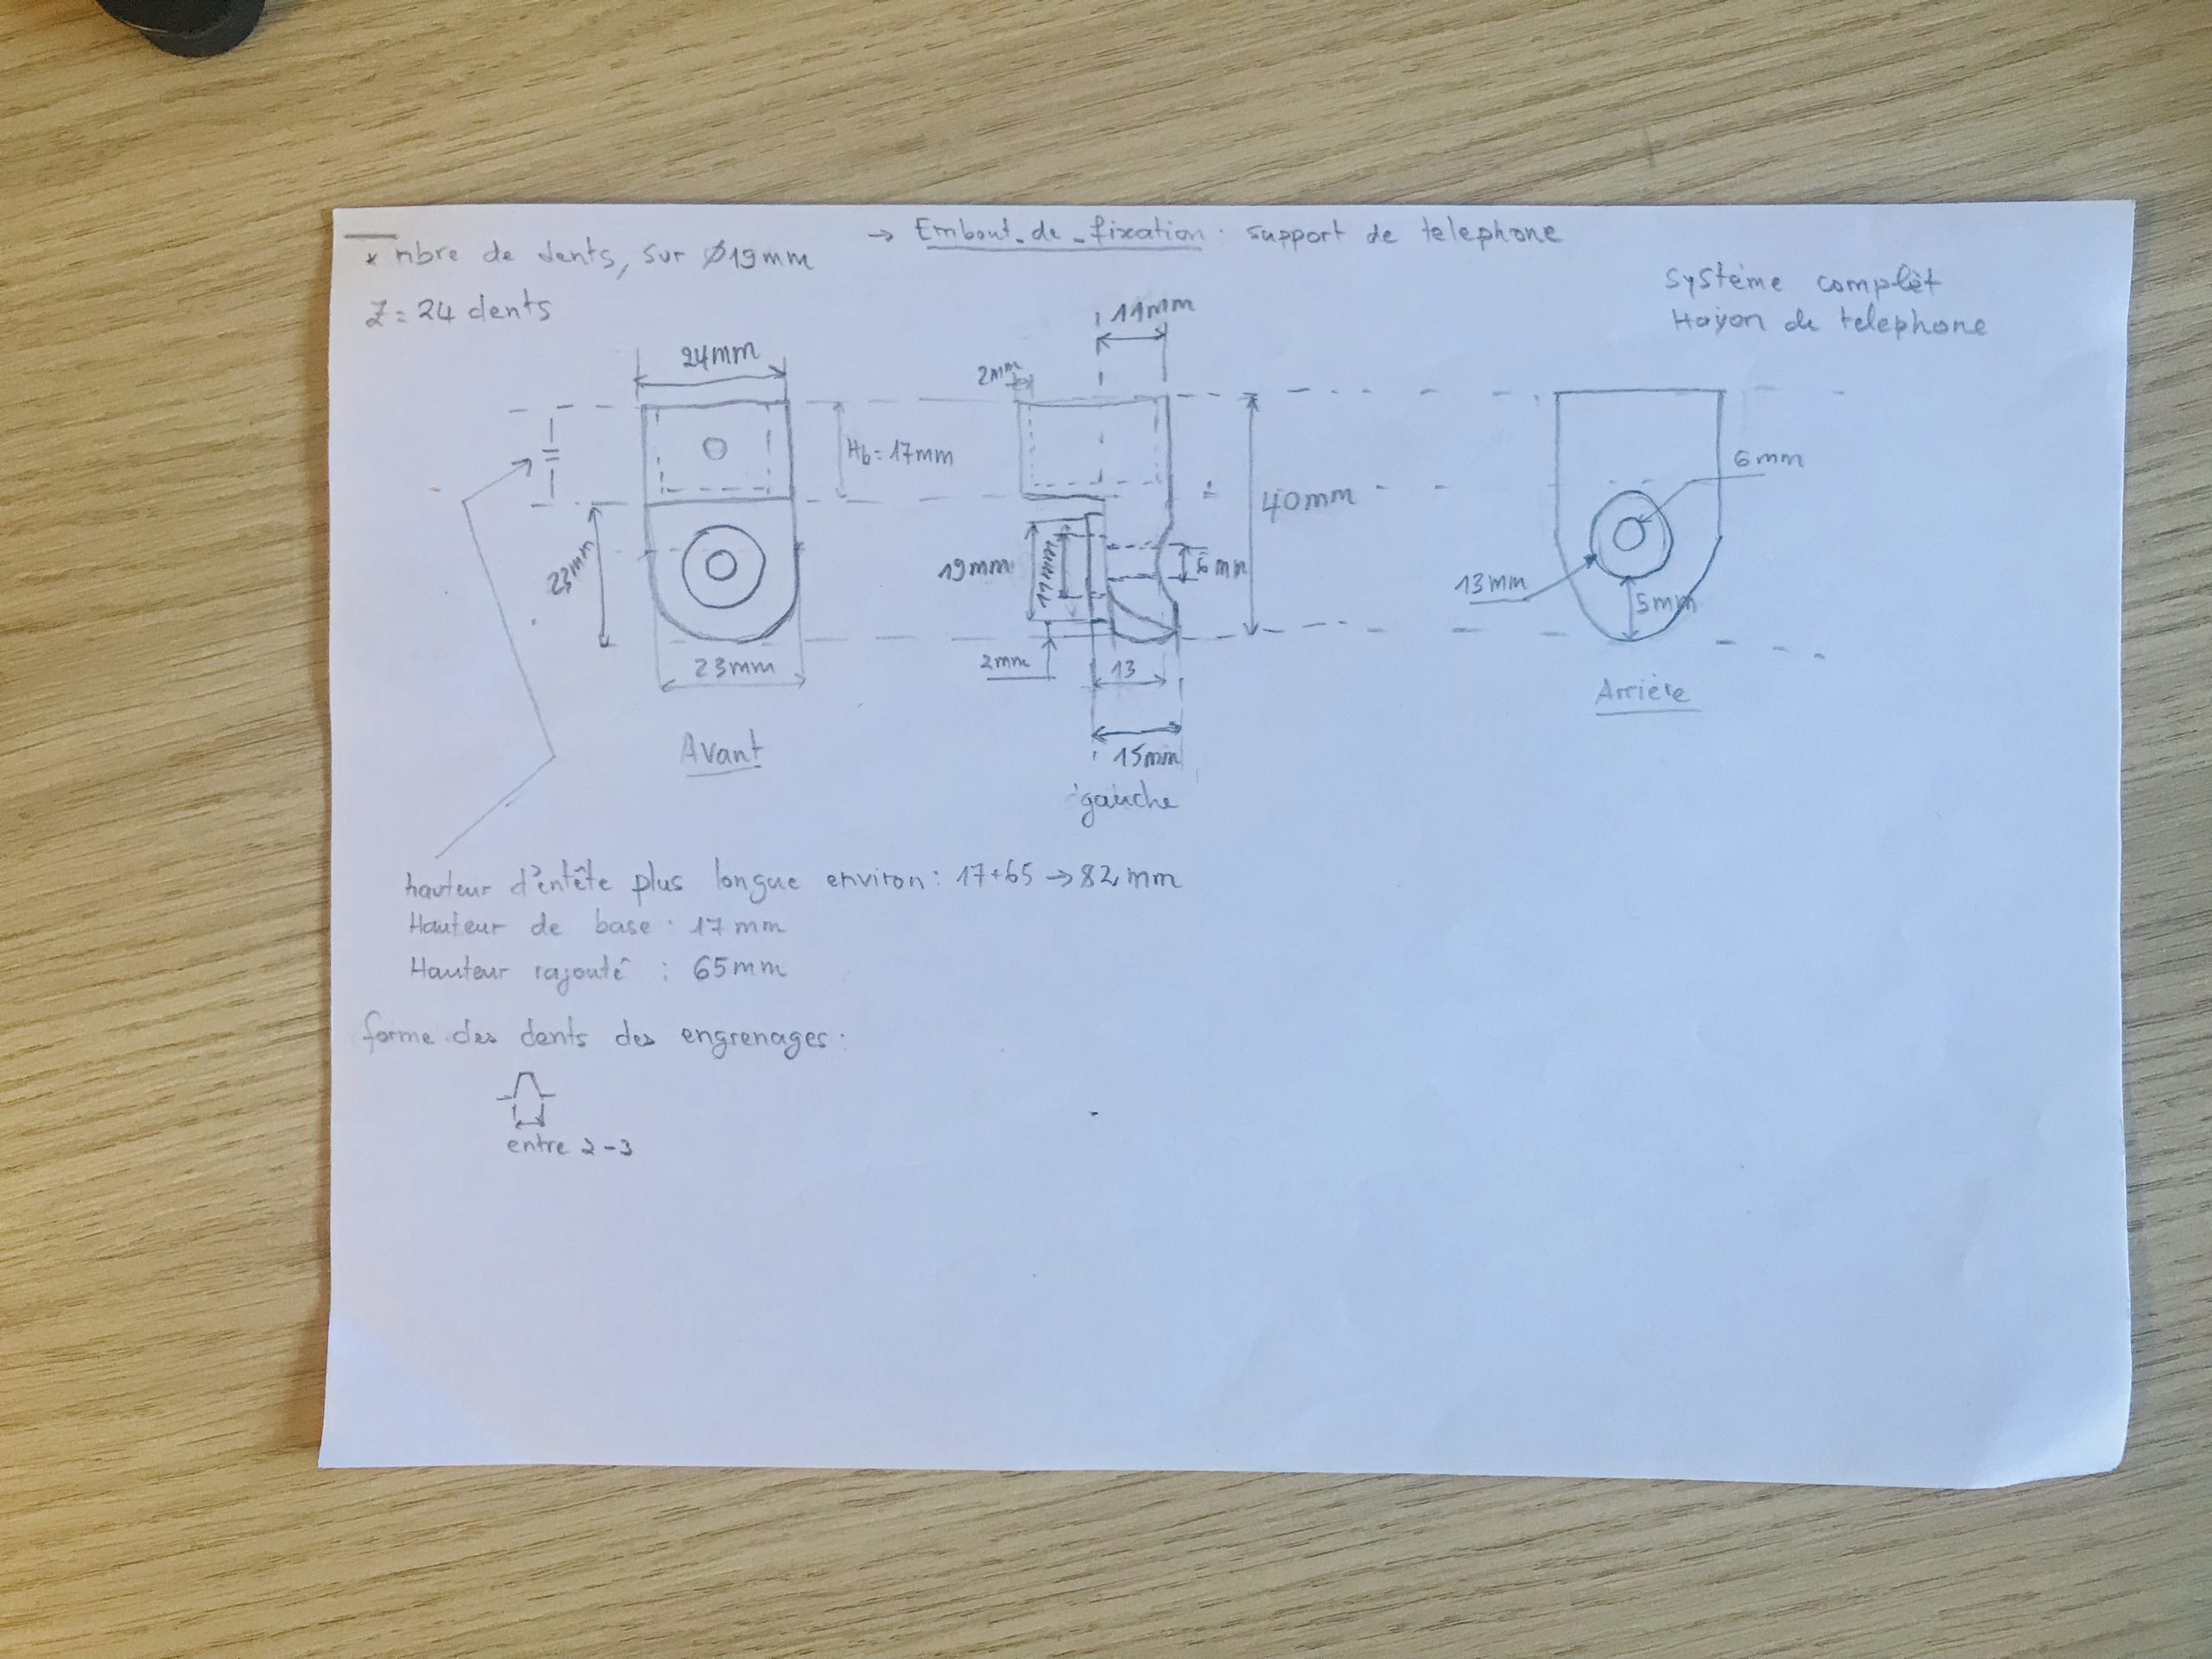 → Embout de fixation : support de telephone
* nbre de dents, sur Ø19mm
Z = 24 dents
Système complèt
Hayon de telephone
11mm
24mm
2mm
Hb = 17mm
40mm
6mm
23mm
19mm
6mm
13mm
5mm
2mm
13
23mm
15mm
Arrière
Avant
gauche
hauteur d'entête plus longue environ : 17+65 → 82 mm
Hauteur de base : 17 mm
Hauteur rajouté : 65mm
forme des dents des engrenages :
entre 2-3